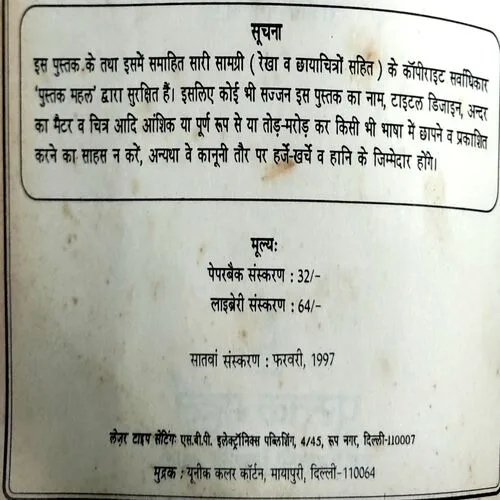 सूचना
इस पुस्तक के तथा इसमें समाहित सारी सामग्री ( रेखा व छायाचित्रों सहित ) के कॉपीराइट सर्वाधिकार
'पुस्तक महल' द्वारा सुरक्षित हैं। इसलिए कोई भी सज्जन इस पुस्तक का नाम, टाइटल डिजाइन, अन्दर
का मैटर व चित्र आदि आंशिक या पूर्ण रूप से या तोड़-मरोड़ कर किसी भी भाषा में छापने व प्रकाशित
करने का साहस न करें, अन्यथा वे कानूनी तौर पर हर्जे-खर्चे व हानि के जिम्मेदार होंगे।
मूल्यः
पेपरबैक संस्करण : 32/-
लाइब्रेरी संस्करण : 64/-
सातवां संस्करण : फरवरी, 1997
लेज़र टाइप सेटिंगः एस.बी.पी. इलेक्ट्रॉनिक्स पब्लिशिंग, 4/45, रूप नगर, दिल्ली-110007
मुद्रक : यूनीक कलर कॉर्टन, मायापुरी, दिल्ली-110064